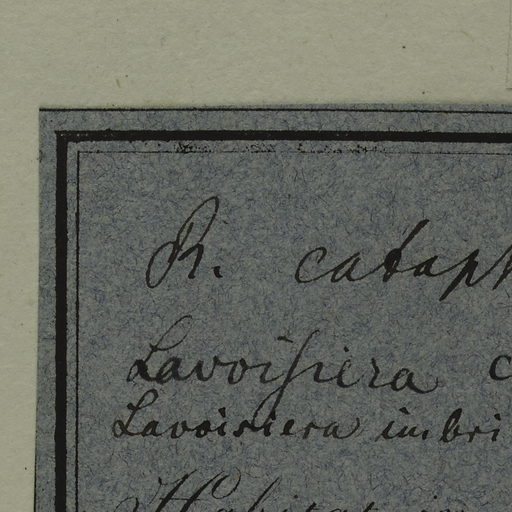 R. cataph
Lavoiſiera c
Lavoisiera imbri
Habitat in